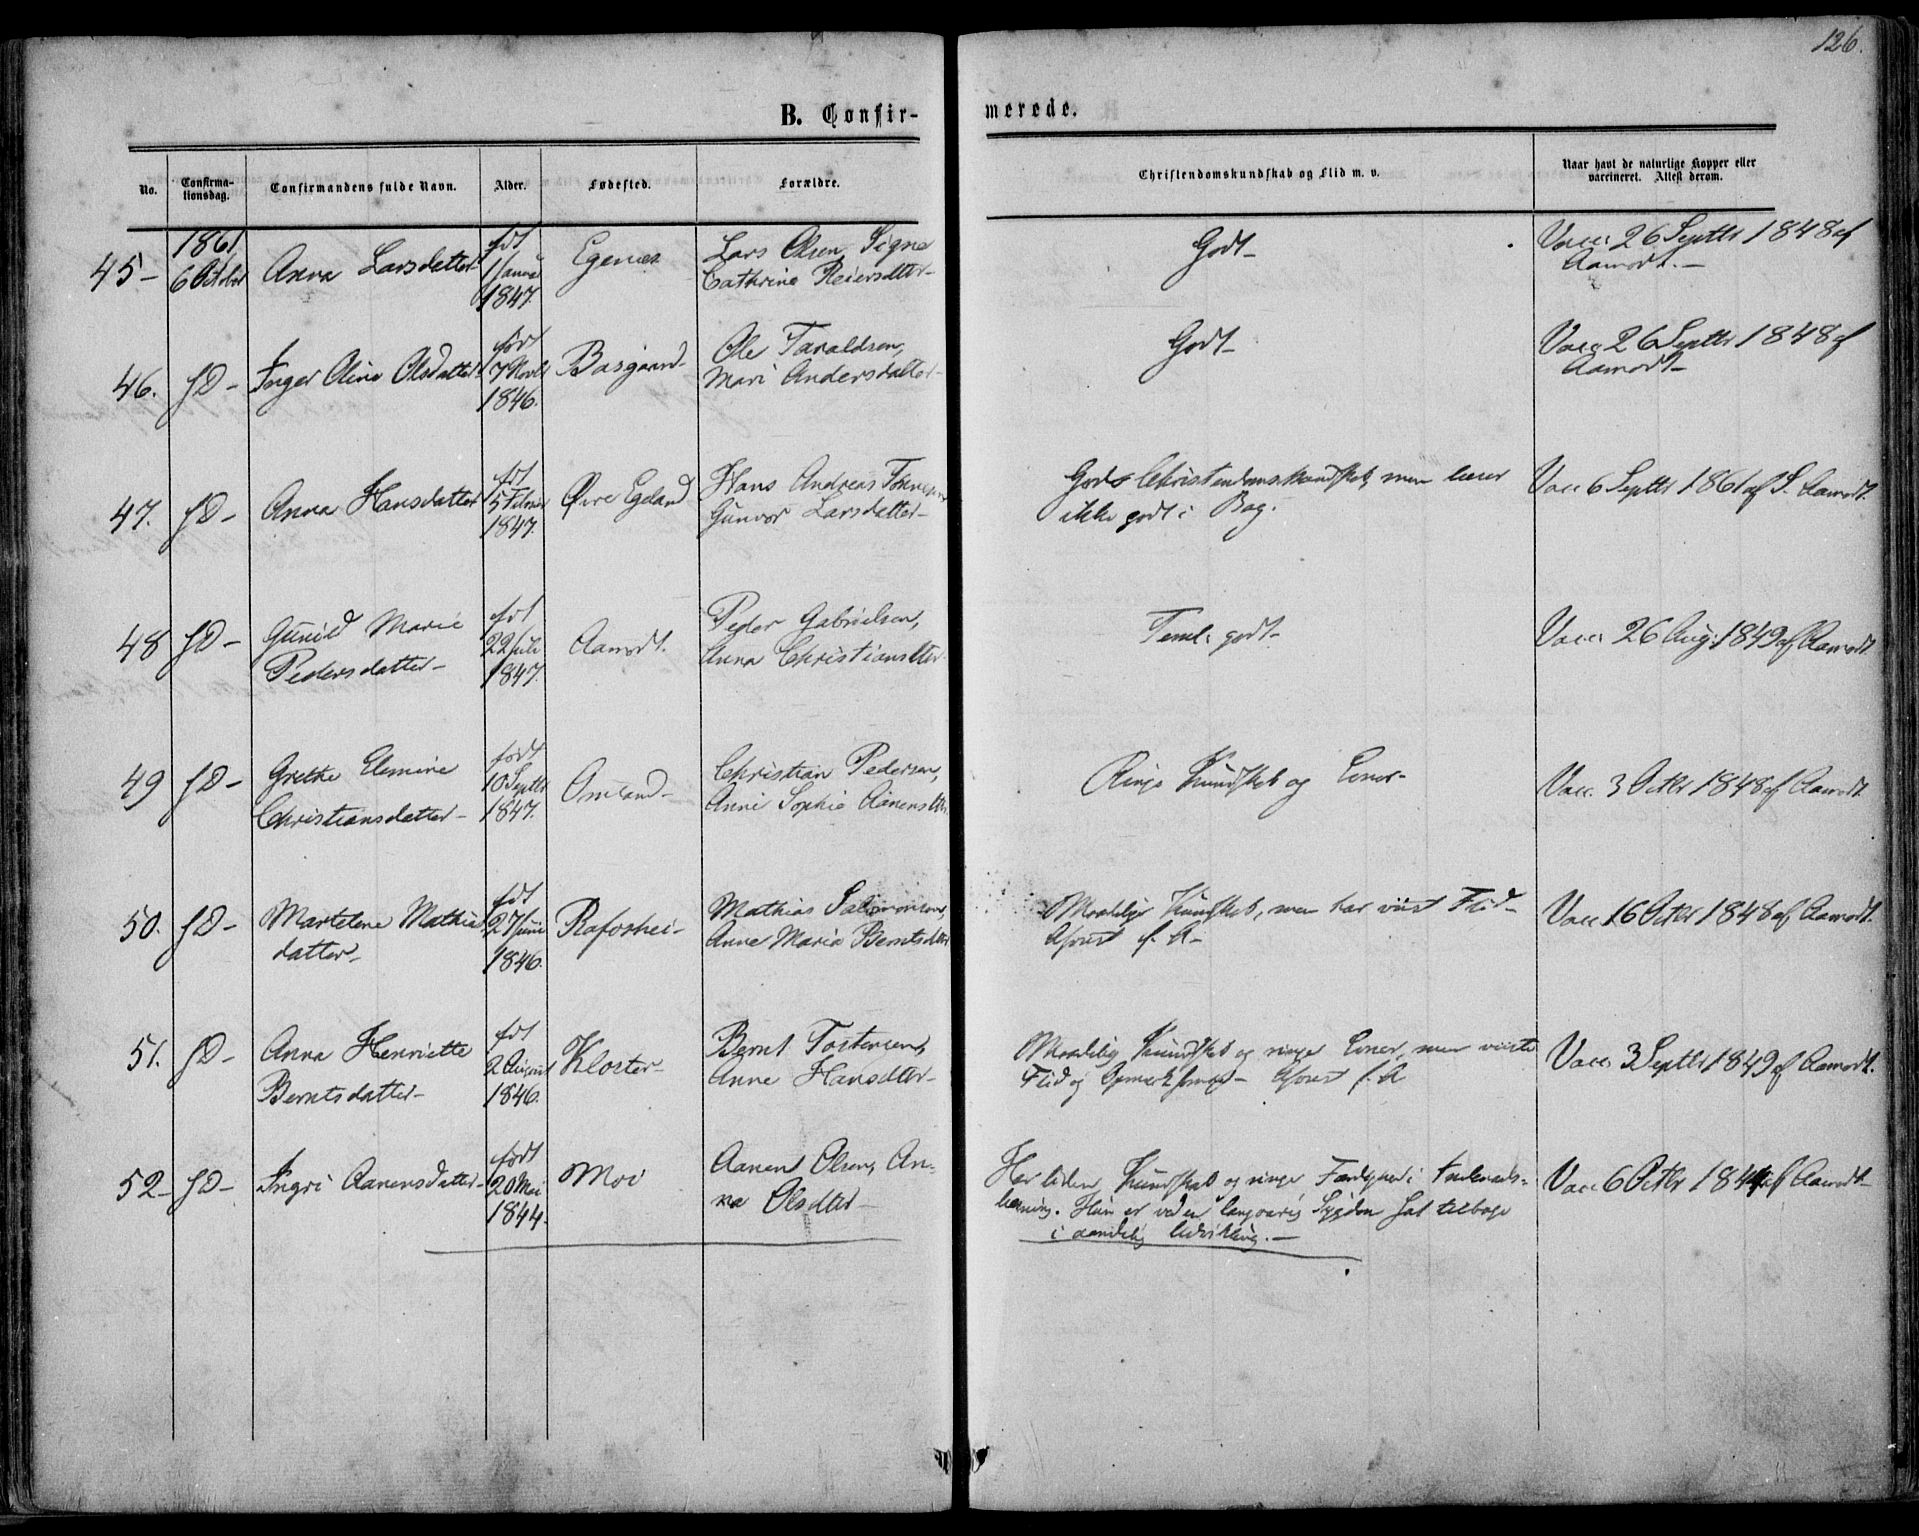 126.
B. Confirmerede.
No.
Confirmationsdag.
Confirmandens fulde Navn.
Alder.
Fødested.
Forældre.
Christendomskundskab og Flid m. v.
Naar havt de naturlige Kopper eller
vaccineret. Attest derom.
1861
45- 6 October Anna Larsdatter- fdt 1 Janur 1847. Egenes
Lars Olsen, Signe
Cathrine Reiersdtter-
Godt-
Vacc. 26 Septbr 1848 af
Aamodt.-
46. fD- Inger Oline Olsdatter- født 7 Novbr 1846. Basgaard-
Ole Taraldsen,
Mari Andersdatter-
Godt-
Vacc. 26 Septbr 1848 af
Aamodt-
47. fD- Anna Hansdatter fdt 5 Februar 1847. Øvre Egeland
Hans Andreas
Gunvor Larsdatter-
God Christendomskundskab, men læser
ikke godt i Bog.
Vacc 6 Septbr 1861 af S. Aamodt.
48 fD- Gunild Marie
Pedersdatter-
fdt 22 Juli 1847. Aamodt.
Peder Gabrielsen,
Anna Christiansdtter-
Teml. godt-
Vacc. 26 Aug. 1849 af Aamodt.
49 fD- Grethe Elemine
Christiansdatter-
født 10 Septbr 1847. Omland-
Christian Pedersen,
Anne Sophie Aanensdtr
Ringe Kundskab og Evner-
Vacc. 3 Octbr 1848 af Aamodt.
50. fD- Martelene Mathias
datter-
fdt 27 Juni 1846. Rafoshei-
Mathias Salomonsen,
Anne Maria Berntsdtter
Maadelig Kundskab, men har viist Flid-
f. A-
Vacc 16 Octbr 1848 af Aamodt.
51. fD- Anna Henriette
Berntsdatter-
fdt 2 August 1846. Kloster-
Bernt Tostensen,
Anne Hansdtter-
Maadelig Kundskab og ringe Evner, men viiste
Flid og Opmærksomhed- f. A
Vacc. 3 Septbr 1849 af Aamodt.
52- fD- Ingri Aanensdatter- født 20 Mai 1844. Moi
Aanen Olsen, An-
na Olsdtter-
Har liden Kundskab og ringe Færdighed i Indenads-
læsning. Hun er ved en langvarig Sygdom sat tilbage
i aandelig Udvikling.-
Vacc 6 Octbr 1844 af Aamodt-